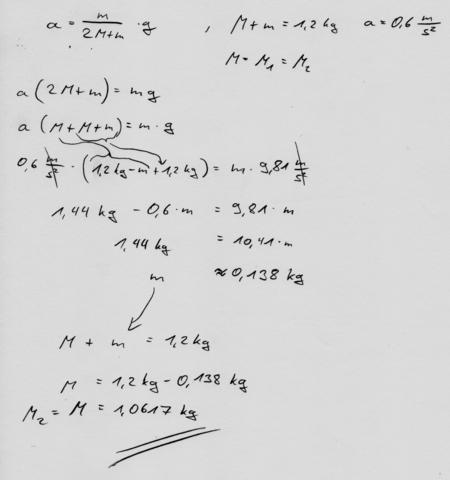 a = m / (2M+m) · g , M+m = 1,2 kg a = 0,6 m/s²
M = M₁ = M₂
a (2M+m) = m g
a (M+M+m) = m · g
0,6 m/s² · (1,2 kg - m + 1,2 kg) = m · 9,81 m/s²
1,44 kg - 0,6 · m = 9,81 · m
1,44 kg = 10,41 · m
m ≈ 0,138 kg
M + m = 1,2 kg
M = 1,2 kg - 0,138 kg
M₂ = M = 1,0617 kg